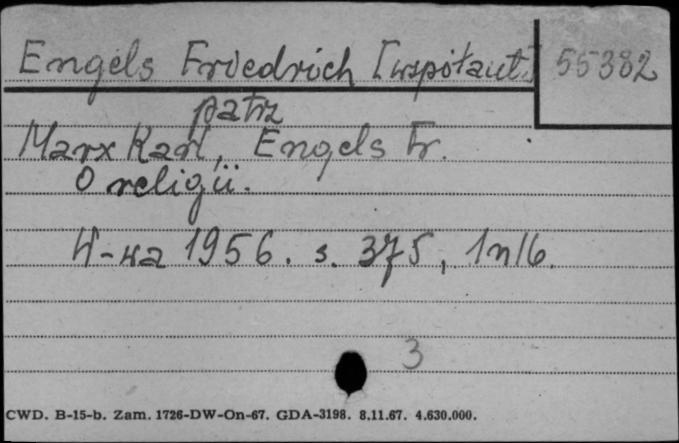 Engels Friedrich [współaut.] 55382
patrz
Marx Karl, Engels Fr.
O religii.
W-wa 1956. s. 375, 1 nlb.
3
CWD. B-15-b. Zam. 1726-DW-On-67. GDA-3198. 8.11.67. 4.630.000.